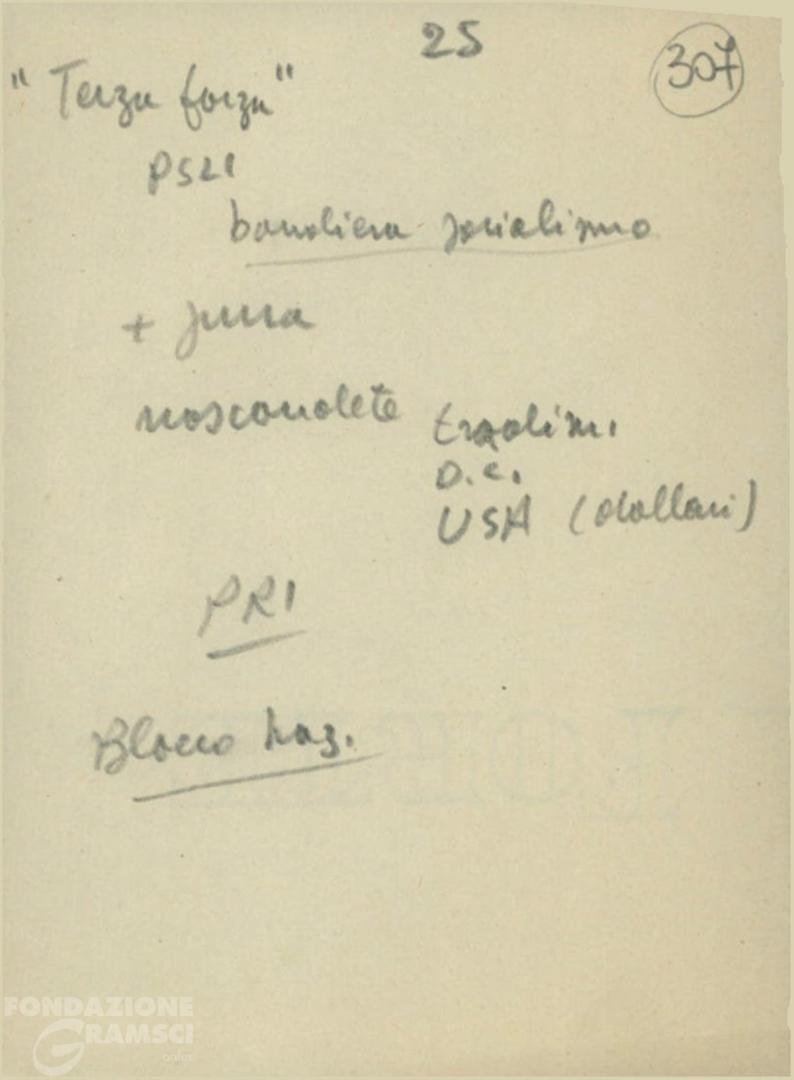 25
307
"Terza forza"
PSLI
bandiera socialismo
+ pura
nascondete
D.C.
USA (dollari)
PRI
Blocco naz.
FONDAZIONE
GRAMSCI
onlus